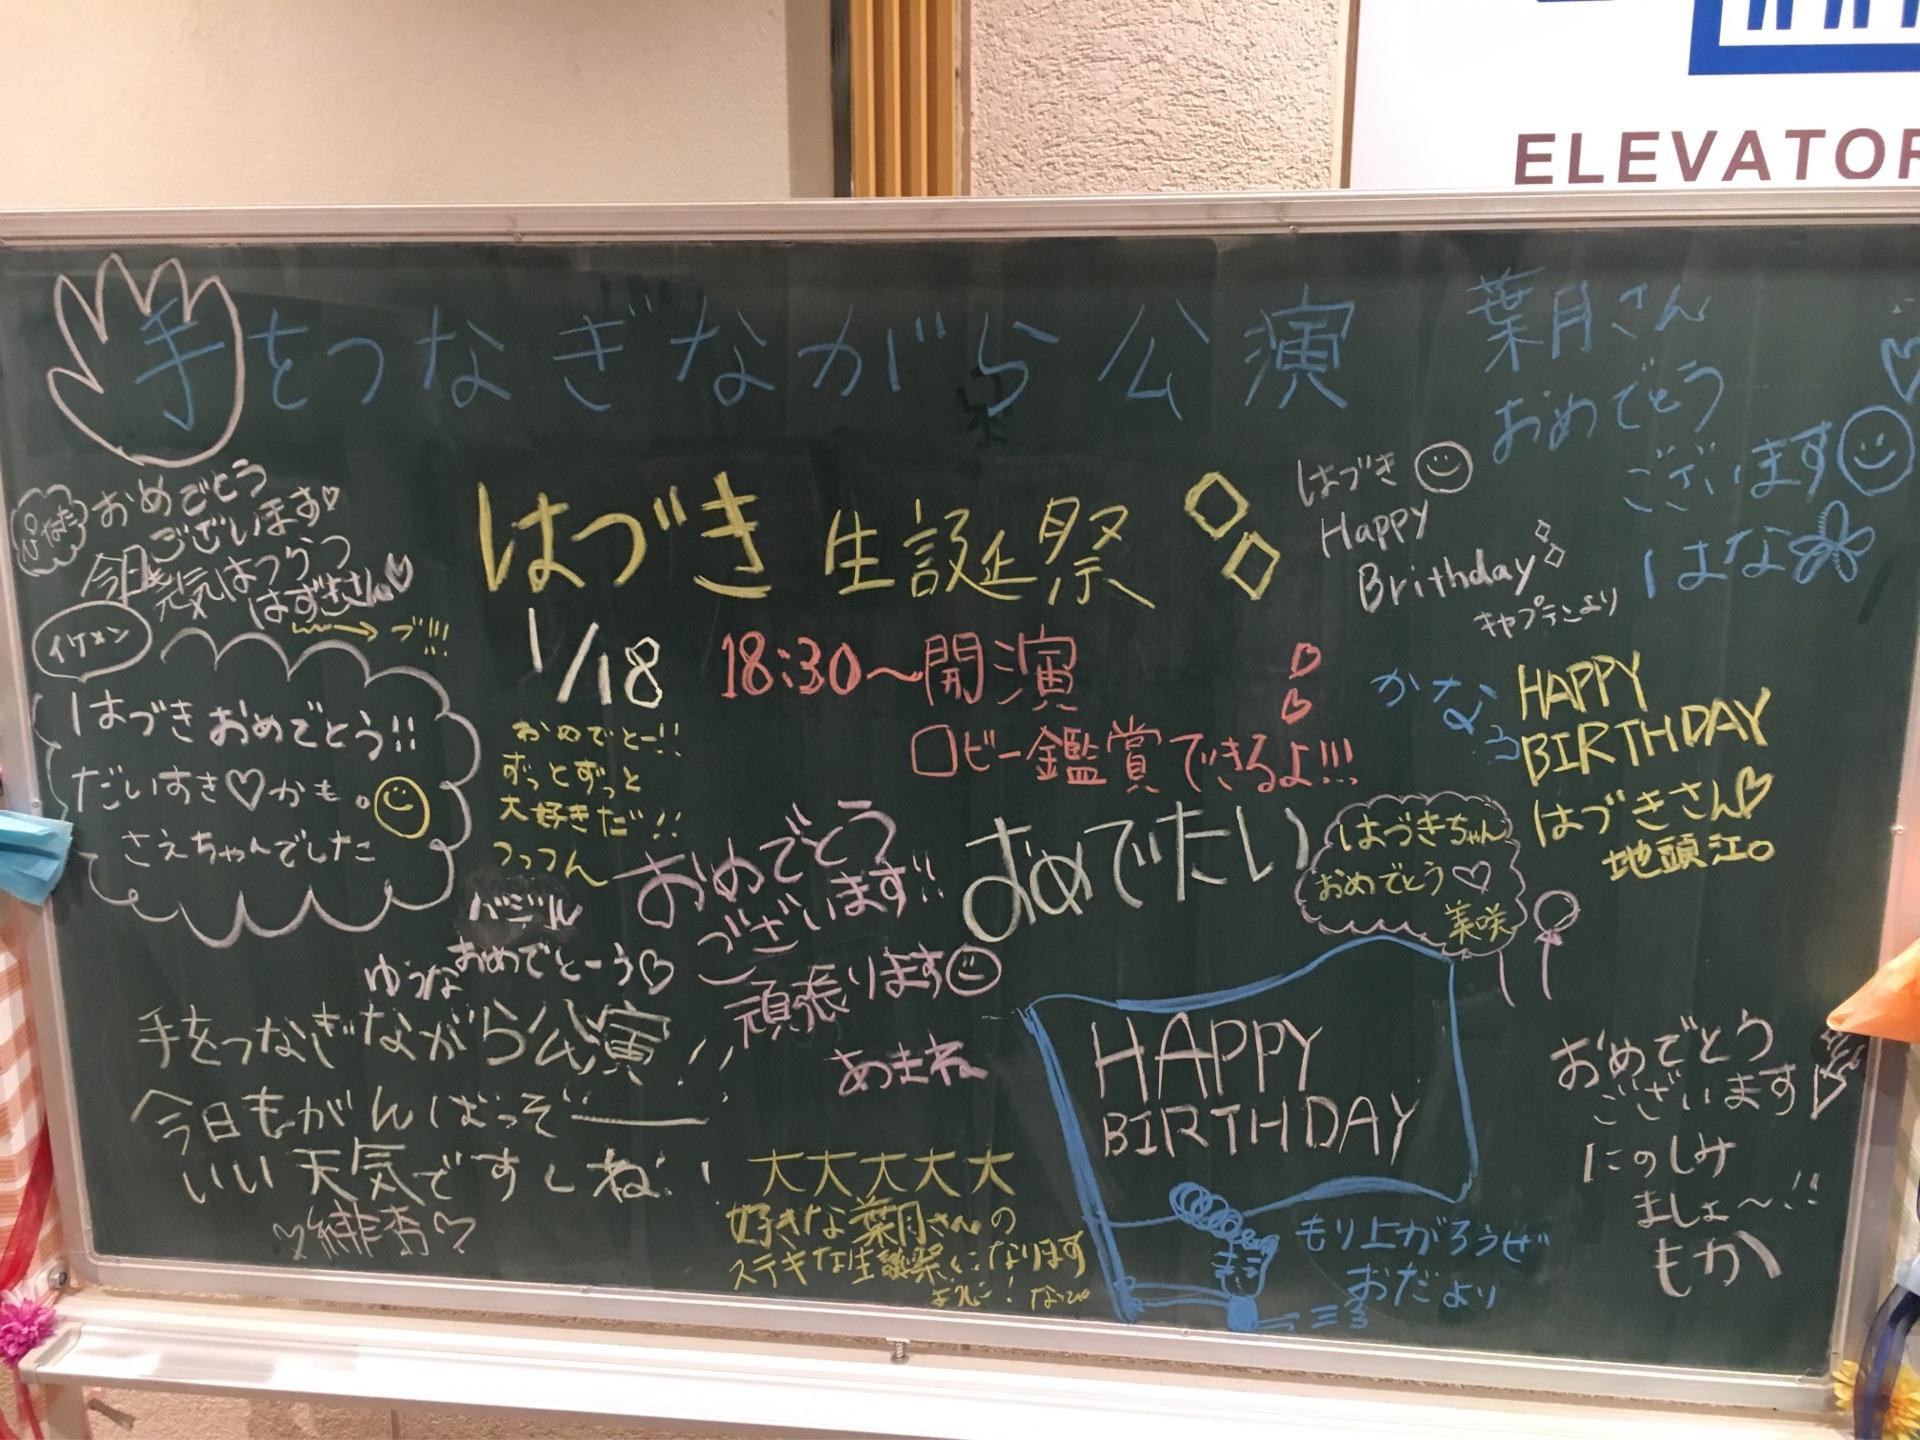 ELEVATOR
手をつなぎながら公演
葉月さん
おめでとう
ございます
はな
はづき
Happy
Brithday
キャプテンより
はづき 生誕祭
1/18 18:30～開演
ロビー鑑賞できるよ!!!
ぴなた
おめでとう
ございます
今日も元気はつらつ
はずきさん
ブ!!!
イケメン
はづきおめでとう!!
だいすき♡かも。
さえちゃんでした
おめでとー!!
ずっとずっと
大好きだ!!
つってん
かなろ
HAPPY
BIRTHDAY
はづきさん♡
地頭江。
おめでとう
ございます!!
頑張ります
あまね
おめでたい
はづきちゃん
おめでとう♡
美咲
バジル
おめでとーう♡
ゆうな
手をつなぎながら公演!!
今日もがんばっぞー
いい天気ですしね!!
♡緋杏♡
大大大大大
好きな葉月さんの
ステキな生誕祭になります
ように! なぴ
HAPPY
BIRTHDAY
もり上がろうぜ
おだより
おめでとう
ございます
たのしみ
ましょ～!!
もか